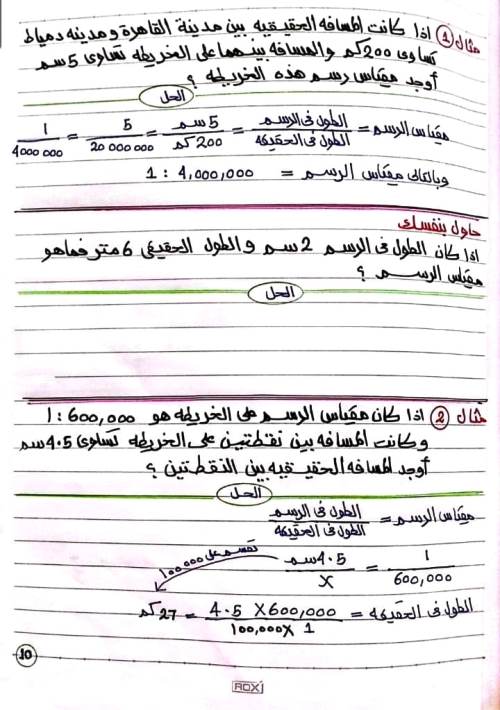 مثال (1) اذا كانت المسافه الحقيقيه بين مدينة القاهرة ومدينه دمياط
تساوى 200 كم والمسافه بينهما على الخريطه تساوى 5 سم
أوجد مقياس رسم هذه الخريطه ؟
الحل
مقياس الرسم = الطول فى الرسم / الطول فى الحقيقه = 5 سم / 200 كم = 5 / 20 000 000 = 1 / 4000 000
وبالتالى مقياس الرسم = 1 : 4,000,000
حاول بنفسك
اذا كان الطول فى الرسم 2 سم والطول الحقيقى 6 متر فما هو
مقياس الرسم ؟
الحل
مثال (2) اذا كان مقياس الرسم على الخريطه هو 600,000 : 1
وكانت المسافه بين نقطتين على الخريطه تساوى 4.5 سم
أوجد المسافه الحقيقيه بين النقطتين ؟
الحل
مقياس الرسم = الطول فى الرسم / الطول فى الحقيقه
1 / 600,000 = 4.5 سم / X
نقسم على 100000
الطول فى الحقيقه = 4.5 X 600,000 / 100,000 X 1 = 27 كم
10
ROXI